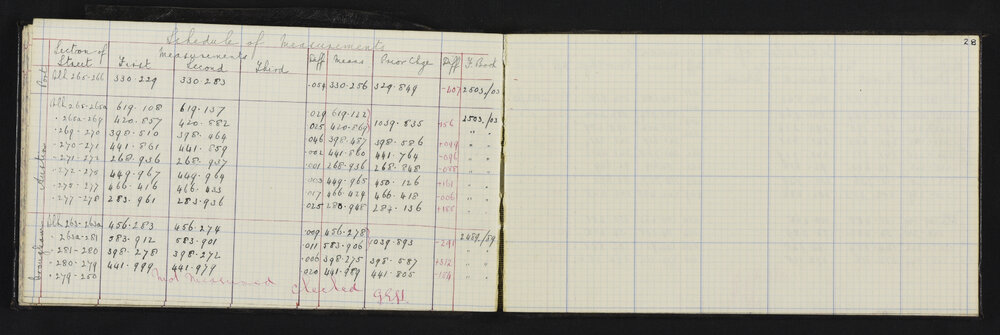 28
Schedule of Measurements
Section of Street Measurements First Second Third Diff Means Prior Chge Diff F. Book
Port
Blk 265-266 330.229 330.283 .054 330.256 329.849 -.407 2503./03
Blk 265-265a 619.108 619.137 .029 619.122
" 265a-269 420.857 420.882 .025 420.869 1039.835 2503./03
" 269-270 398.510 398.464 .046 398.487 398.586 +.099 " "
" 270-271 441.861 441.859 .002 441.860 441.764 -.096 " "
" 271-272 268.936 268.937 .001 268.936 268.848 -.088 " "
" 272-275 449.967 449.964 .003 449.965 450.126 +.161 " "
" 275-277 466.416 466.433 .017 466.424 466.418 -.006 " "
" 277-278 283.961 283.936 .025 283.948 284.136 " "
Blk 263-263a 456.283 456.274 .009 456.278
" 263a-281 583.912 583.901 .011 583.906 1039.893 -.291 2489./59
" 281-280 398.278 398.272 .006 398.275 398.587 +.312 " "
" 280-279 441.999 441.979 .020 441.989 441.805 -.184 " "
" 279-250
Not Measured